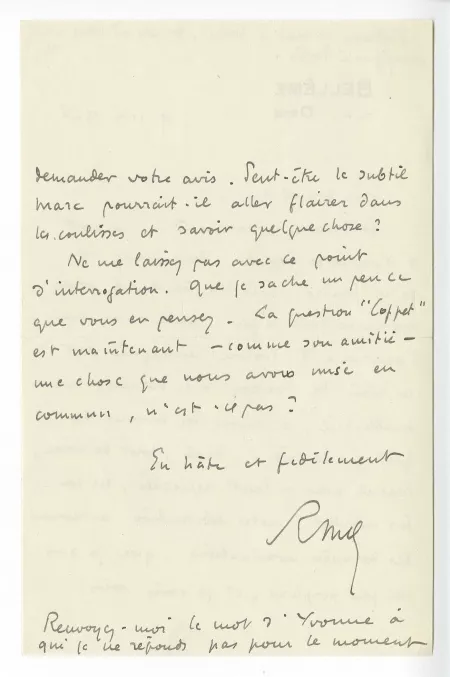 demander votre avis. Peut-être le subtil
Marc pourrait-il aller flairer dans
les coulisses et savoir quelque chose ?
Ne me laissez pas avec ce point
d'interrogation. Que je sache un peu ce
que vous en pensez. La question "Coppet"
est maintenant — comme son amitié —
une chose que nous avons mise en
commun, n'est-ce pas ?
En hâte et fidèlement
Renvoyez-moi le mot d'Yvonne à
qui je ne réponds pas pour le moment